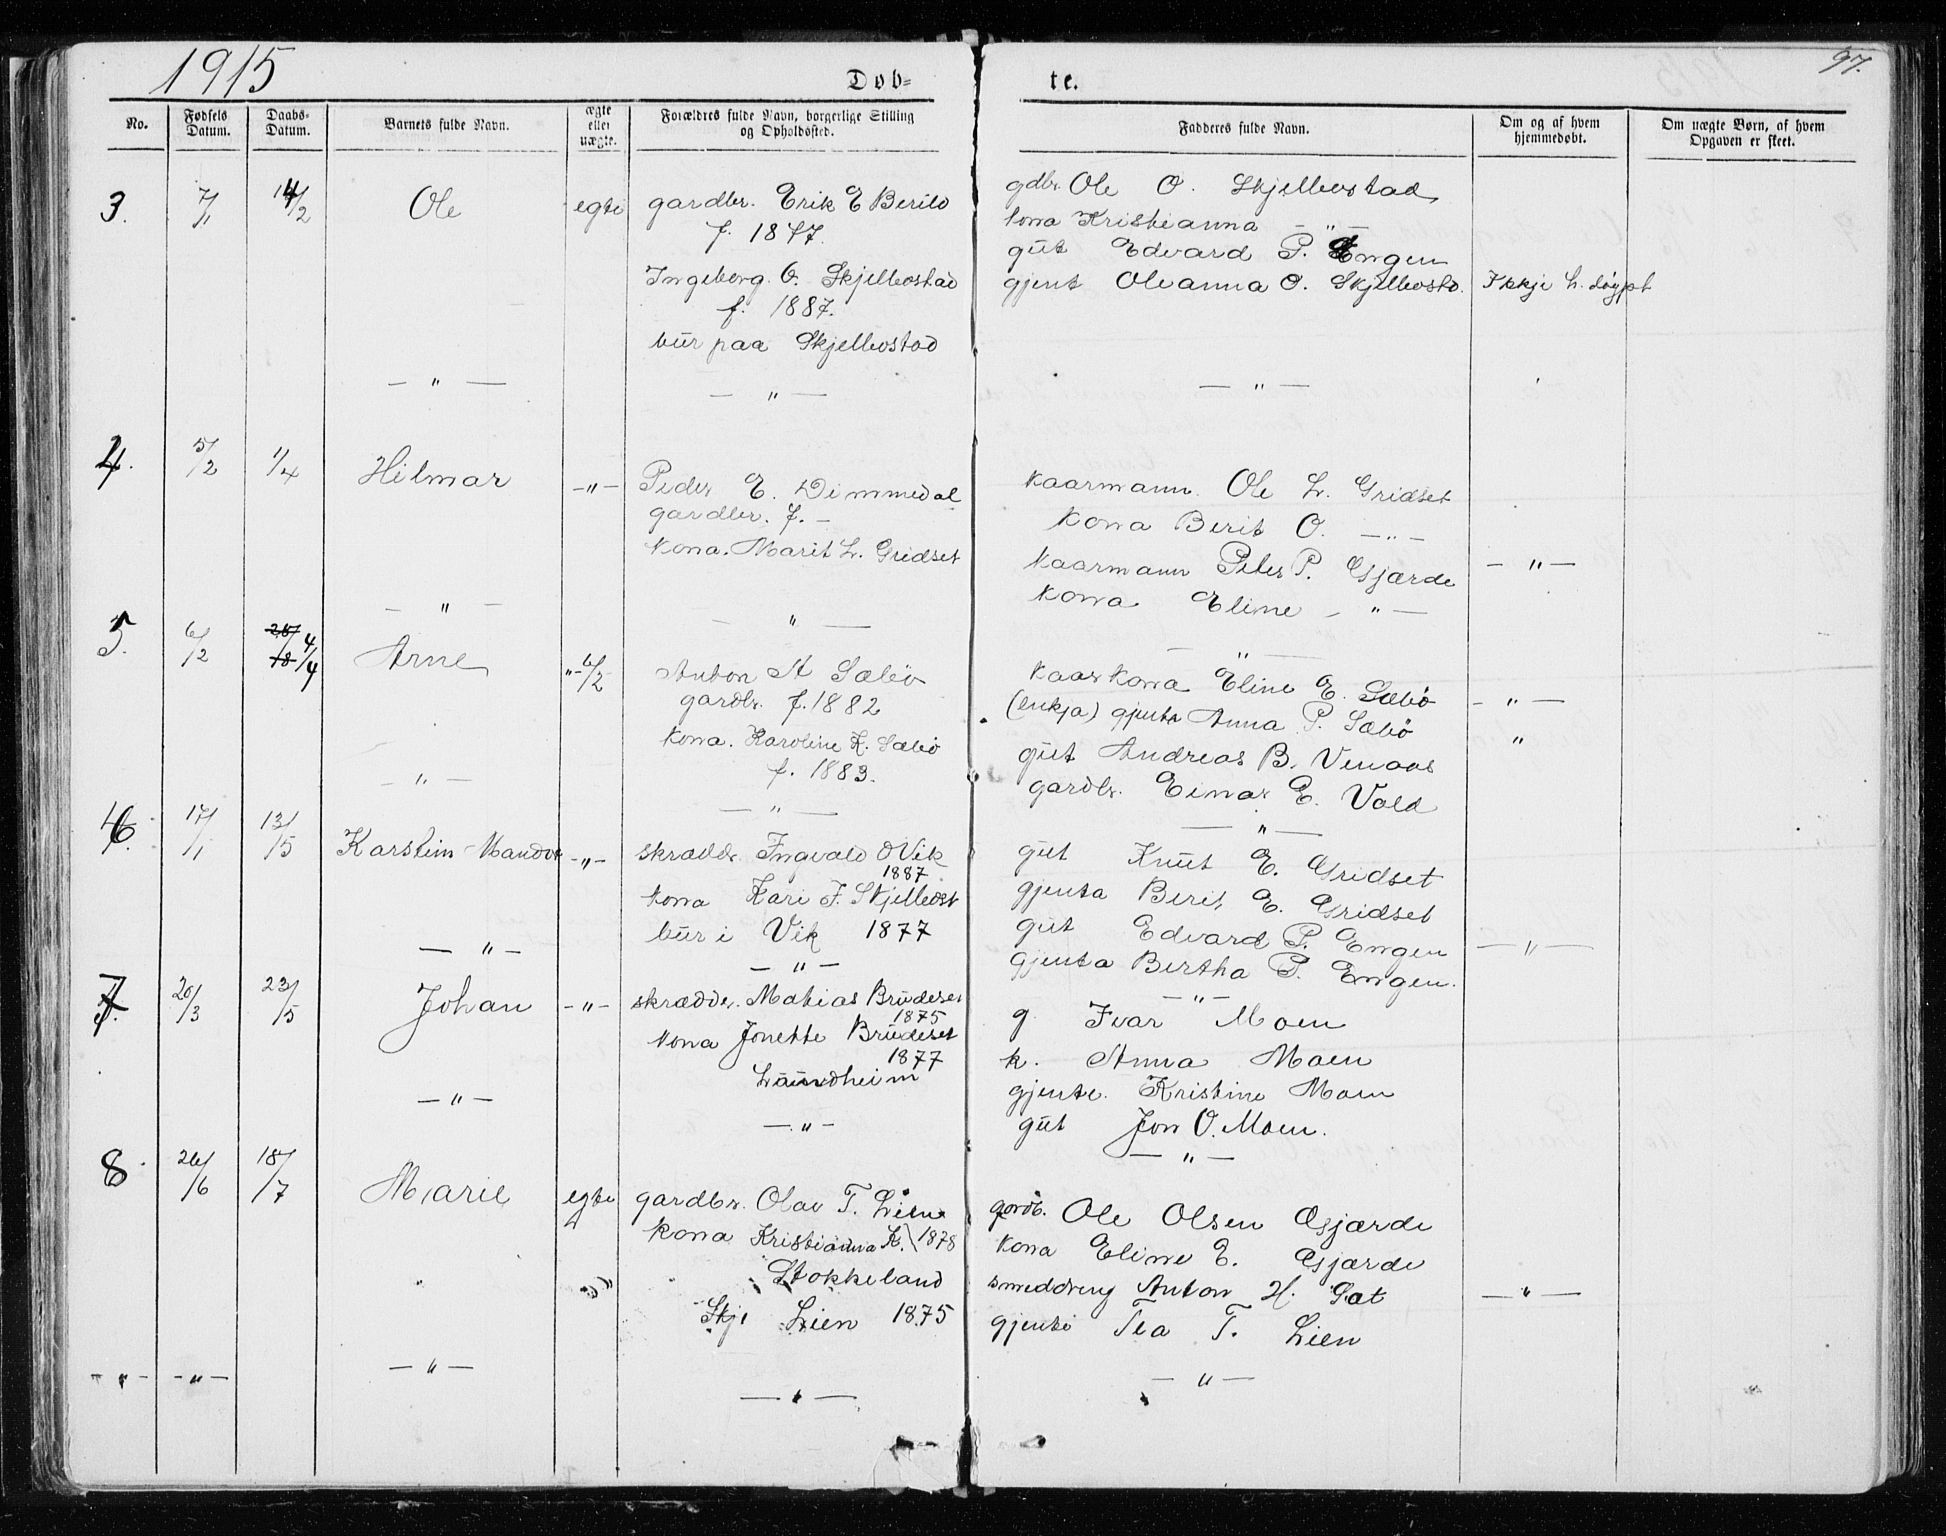 1915
97.
Døb=
te.
No.
Fødsels Datum.
Daabs-Datum.
Barnets fulde Navn.
ægte eller uægte.
Forældres fulde Navn, borgerlige Stilling og Opholdssted.
Fadderes fulde Navn.
Om og af hvem hjemmedøbt.
Om uægte Børn, af hvem Opgaven er skeet.
3. 7/1 14/2 Ole egte
gardbr. Erik E Berild
f. 1877.
Ingeborg. O. Skjelbostad
f. 1887.
bur paa Skjelbostad
gdbr. Ole O. Skjelbostad
kona Kristianna – " –
gut Edvard P. Engen
gjent Oleanna O. Skjelbostd. Ikkje h. døypt
— " —
— " —
— " —
4. 5/2 1/4 Hilmar – " –
Peder E. Dimmedal
gardbr. f. –
kona. Marit L. Gridset
kaarmann Ole L. Gridset
kona Berit O. – " –
kaarmann Peter P. Gjærde – " –
kona Eline – " –
— " —
— " —
— " —
5. 6/2 4/4 Arne – " – 6/2
Anton A Sæbö
gardbr. f. 1882
kona. Karoline K. Sæbö
f. 1883.
kaarkona Eline E. Sæbø – " –
(enkja) gjenta Anna P. Sæbø "
gut Andreas B. Venaas
gardbr. Einar E. Vold
— " —
— " —
— " —
6. 17/1 13/5 Karstein – " –
skrædd. Ingvald O Vik
1887
kona Kari J. Skjelbost
bur i Vik 1877
gut Knut E. Gridset
gjenta Berit E. Gridset
gut Edvard P. Engen — " —
gjenta Bertha P. Engen.
— " —
— " —
— " —
7. 20/3 23/5 Johan – " –
skrædder. Matias Brudeset
1875
kona Jonette Brudeset
1877
Laundheim
g Ivar Moen
k. Anna Moen
gjente. Kristine Moen
gut Jon O. Moen.
— " —
— " —
— " —
8. 26/6 18/7 Marie egte
gardbr. Olav T. Lien
kona Kristianna K. 1878
Stokkeland
Lien 1875
gardb. Ole Olsen Gjærde
kona Eline E. Gjærde
smeddreng Anton H. Sæt — " —
gjente Tea T. Lien
– " – – " – — " —
— " —
— " —